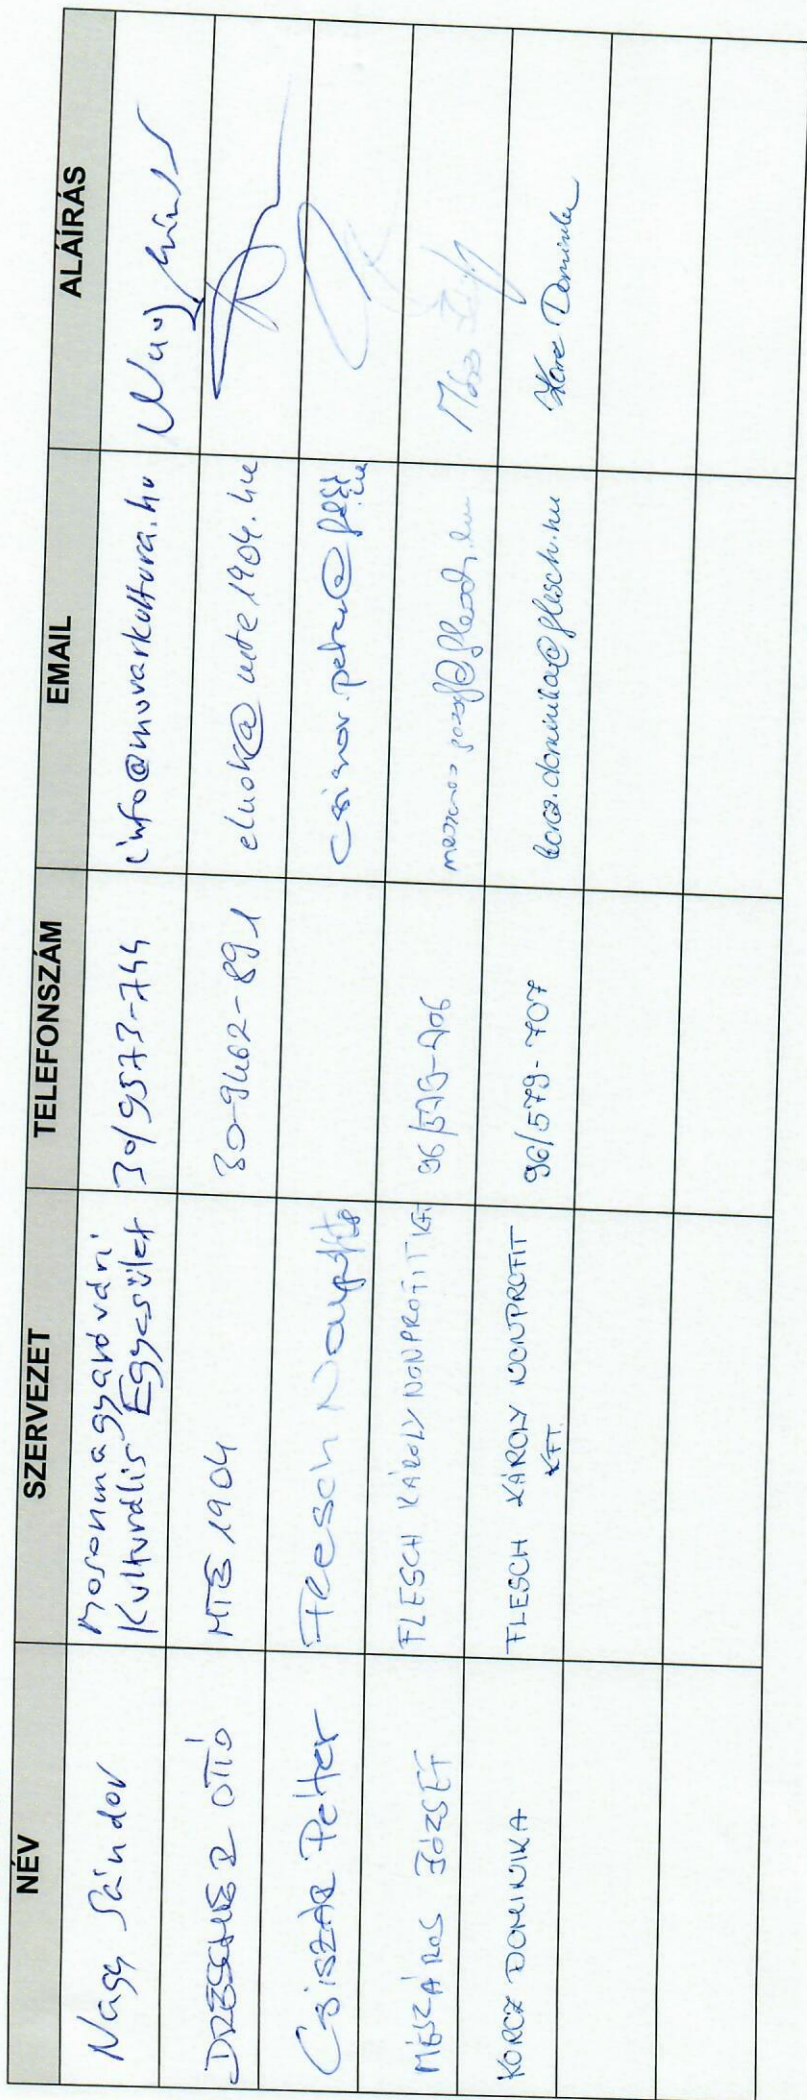 NÉV SZERVEZET TELEFONSZÁM EMAIL ALÁÍRÁS
Nagy Sándor Mosonmagyaróvári
Kulturális Egyesület 30/9573-744 info@movarkultura.hu Nagy Sándor
DRESCHER OTTÓ MTE 1904 30-9462-891 elnok@mte1904.hu
Csiszár Péter Flesch Nonprofit
MÉSZÁROS JÓZSEF FLESCH KÁROLY NONPROFIT Kft 96/579-706
KORCZ DOMINIKA FLESCH KÁROLY NONPROFIT
KFT. 96/579-707 korcz.dominika@flesch.hu Korcz Dominika